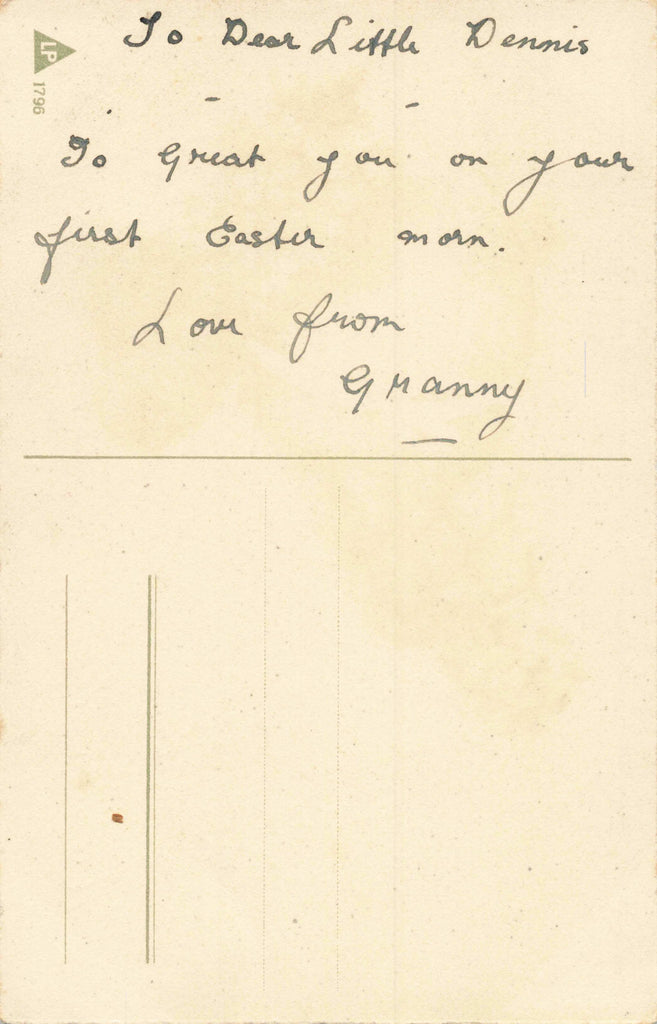 To Dear Little Dennis
LP
1796
To Great you on your
first Easter morn.
Love from
Granny